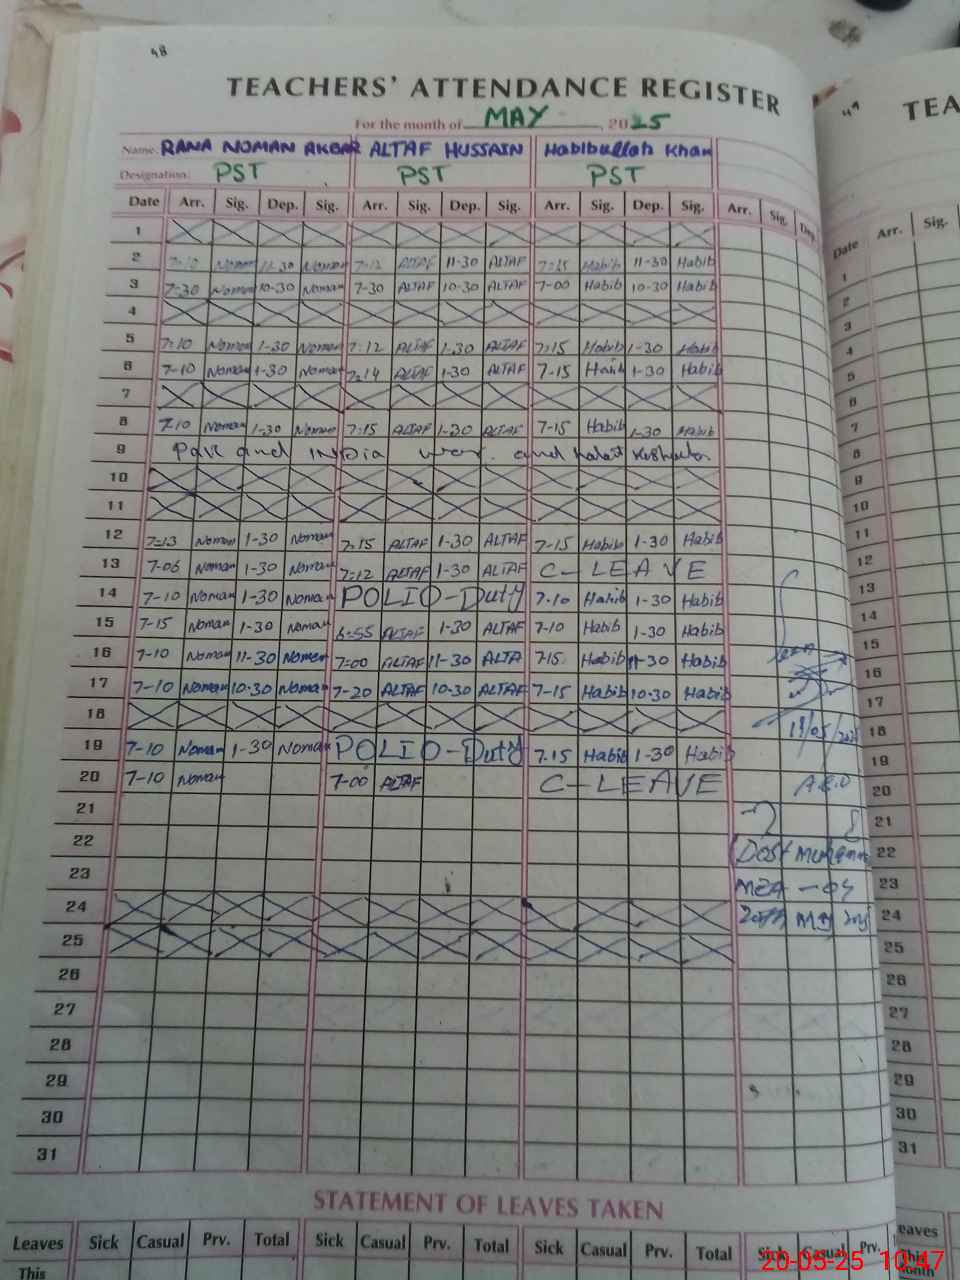 48
TEACHERS' ATTENDANCE REGISTER
For the month of MAY, 2025
Name: RANA NOMAN AKBAR ALTAF HUSSAIN Habibullah Khan
Designation: PST PST PST
Date Arr. Sig. Dep. Sig. Arr. Sig. Dep. Sig. Arr. Sig. Dep. Sig. Arr. Sig. Dep.
1
2 7-10 Noman 11-30 Noman 7-12 ALTAF 11-30 ALTAF 7-15 Habib 11-30 Habib
3 7-30 Noman 10-30 Noman 7-30 ALTAF 10-30 ALTAF 7-00 Habib 10-30 Habib
4
5 7-10 Noman 1-30 Noman 7-12 ALTAF 1-30 ALTAF 7-15 Habib 1-30 Habib
6 7-10 Noman 1-30 Noman 7-14 ALTAF 1-30 ALTAF 7-15 Habib 1-30 Habib
7
8 7-10 Noman 1-30 Noman 7-15 ALTAF 1-30 ALTAF 7-15 Habib 1-30 Habib
9 Pak and INDia war. and
10
11
12 7-13 Noman 1-30 Noman 7-15 ALTAF 1-30 ALTAF 7-15 Habib 1-30 Habib
13 7-06 Noman 1-30 Noman 7-12 ALTAF 1-30 ALTAF C-LEAVE
14 7-10 Noman 1-30 Noman POLIO-Duty 7-10 Habib 1-30 Habib
15 7-15 Noman 1-30 Noman 6-55 ALTAF 1-30 ALTAF 7-10 Habib 1-30 Habib
16 7-10 Noman 11-30 Noman 7-00 ALTAF 11-30 ALTA 7-15 Habib 11-30 Habib
17 7-10 Noman 10-30 Noman 7-20 ALTAF 10-30 ALTAF 7-15 Habib 10-30 Habib
18
19 7-10 Noman 1-30 Noman POLIO-Duty 7-15 Habib 1-30 Habib
20 7-10 Noman 7-00 ALTAF C-LEAVE
21
22
23
24
25
26
27
28
29
30
31
A.E.O
Dost
MEA
STATEMENT OF LEAVES TAKEN
Leaves Sick Casual Prv. Total Sick Casual Prv. Total Sick Casual Prv. Total Sick Casual Prv.
This
49
TEA
Date Arr. Sig.
1
2
3
4
5
6
7
8
9
10
11
12
13
14
15
16
17
18
19
20
21
22
23
24
25
26
27
28
29
30
31
eaves
This
Month
20-05-25 10:47